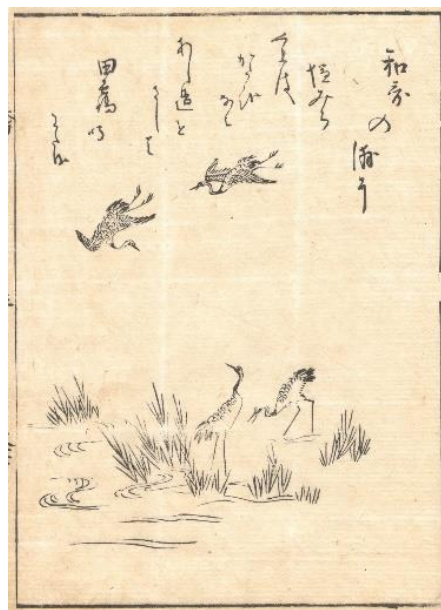 和哥の
浦に
塩みち
くれは
かたを
なみ
あし邊を
さして
田鶴鳴
わたる